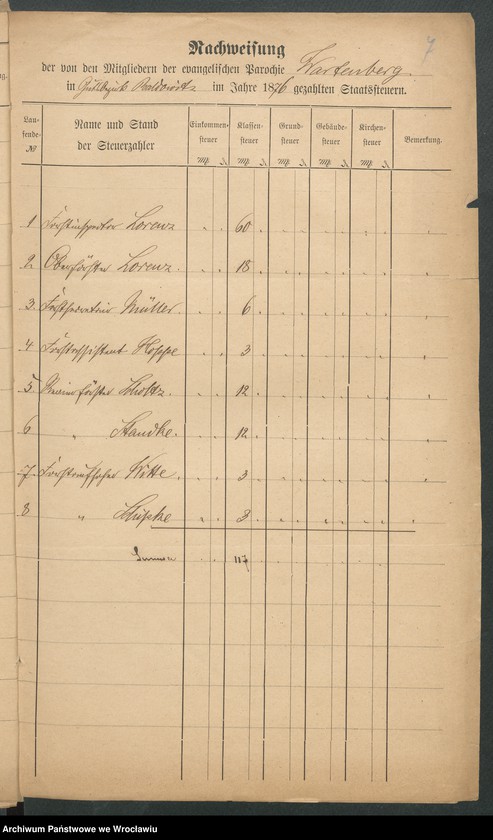 7
Nachweisung
der von den Mitgliedern der evangelischen Parochie Wartenberg.
in Gutsbezirk im Jahre 1876 gezahlten Staatssteuern.
Lau-fende № Name und Stand der Steuerzahler Einkommen-steuer Klassen-steuer Grund-steuer Gebäude-steuer Kirchen-steuer Bemerkung.
1 Forstinspector Lorenz 60
2 Oberförster Lorenz. 18
3 Forstsecretair Müller. 6
4 Forstassistent Hoppe 3
5 Revierförster Scholtz. 12
6 " Standke. 12
7 Forstaufseher Witte. 3
8 " 3
Summa 117
Archiwum Państwowe we Wrocławiu